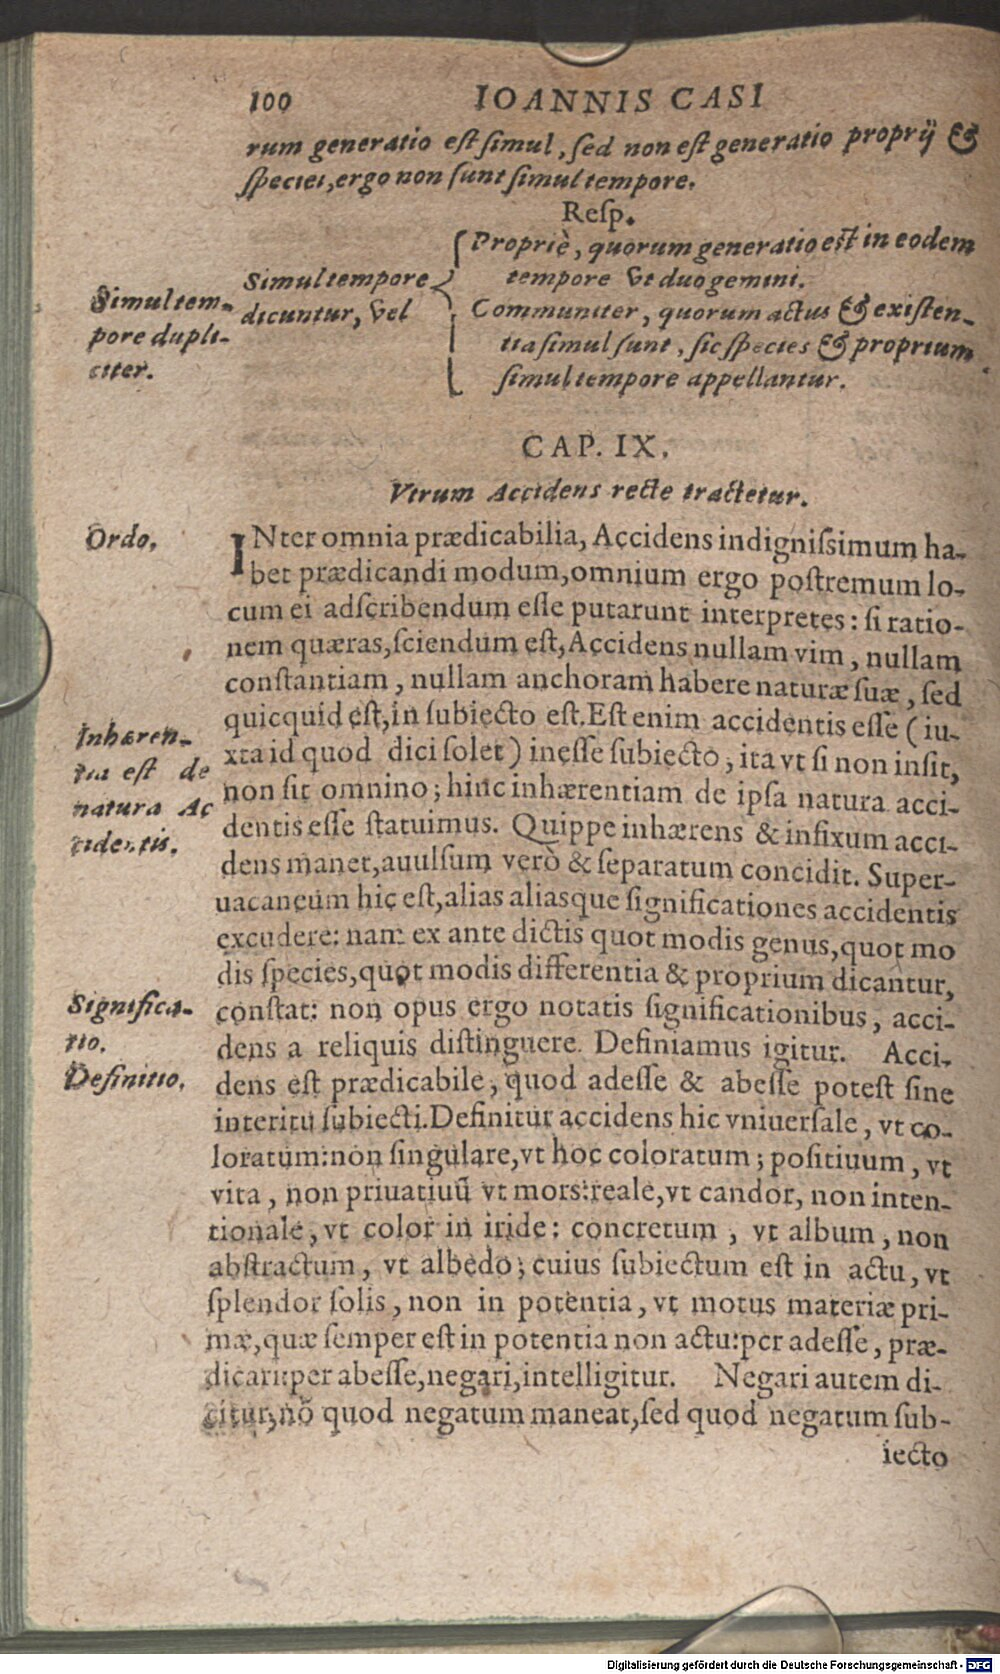 100 IOANNIS CASI
rum generatio est simul, sed non est generatio proprij &
speciei, ergo non sunt simul tempore.
Resp.
Simul tem-
pore dupli-
citer.
Simul tempore
dicuntur, vel
Propriè, quorum generatio est in eodem
tempore vt duo gemini.
Communiter, quorum actus & existen-
tia simul sunt, sic species & proprium
simul tempore appellantur.
CAP. IX.
Vtrum Accidens recte tractetur.
Ordo.
INter omnia prædicabilia, Accidens indignissimum ha-
bet prædicandi modum, omnium ergo postremum lo-
cum ei adscribendum esse putarunt interpretes: si ratio-
nem quæras, sciendum est, Accidens nullam vim, nullam
constantiam, nullam anchoram habere naturæ suæ, sed
quicquid est, in subiecto est. Est enim accidentis esse (iu-
xta id quod dici solet) inesse subiecto; ita vt si non insit,
non sit omnino; hinc inhærentiam de ipsa natura acci-
dentis esse statuimus. Quippe inhærens & infixum acci-
dens manet, auulsum verò & separatum concidit. Super-
uacaneum hic est, alias aliasque significationes accidentis
excudere: nam ex ante dictis quot modis genus, quot mo
dis species, quot modis differentia & proprium dicantur,
constat: non opus ergo notatis significationibus, acci-
dens a reliquis distinguere. Definiamus igitur. Acci-
dens est prædicabile, quod adesse & abesse potest sine
interitu subiecti. Definitur accidens hic vniuersale, vt co-
loratum: non singulare, vt hoc coloratum; positiuum, vt
vita, non priuatiuū vt mors: reale, vt candor, non inten-
tionale, vt color in iride: concretum, vt album, non
abstractum, vt albedo; cuius subiectum est in actu, vt
splendor solis, non in potentia, vt motus materiæ pri-
mæ, quæ semper est in potentia non actu: per adesse, præ-
dicari: per abesse, negari, intelligitur. Negari autem di-
citur, nō quod negatum maneat, sed quod negatum sub-
iecto
Inhæren-
tia est de
natura Ac
cidentis.
Significa-
tio.
Definitio.
Digitalisierung gefördert durch die Deutsche Forschungsgemeinschaft - DFG